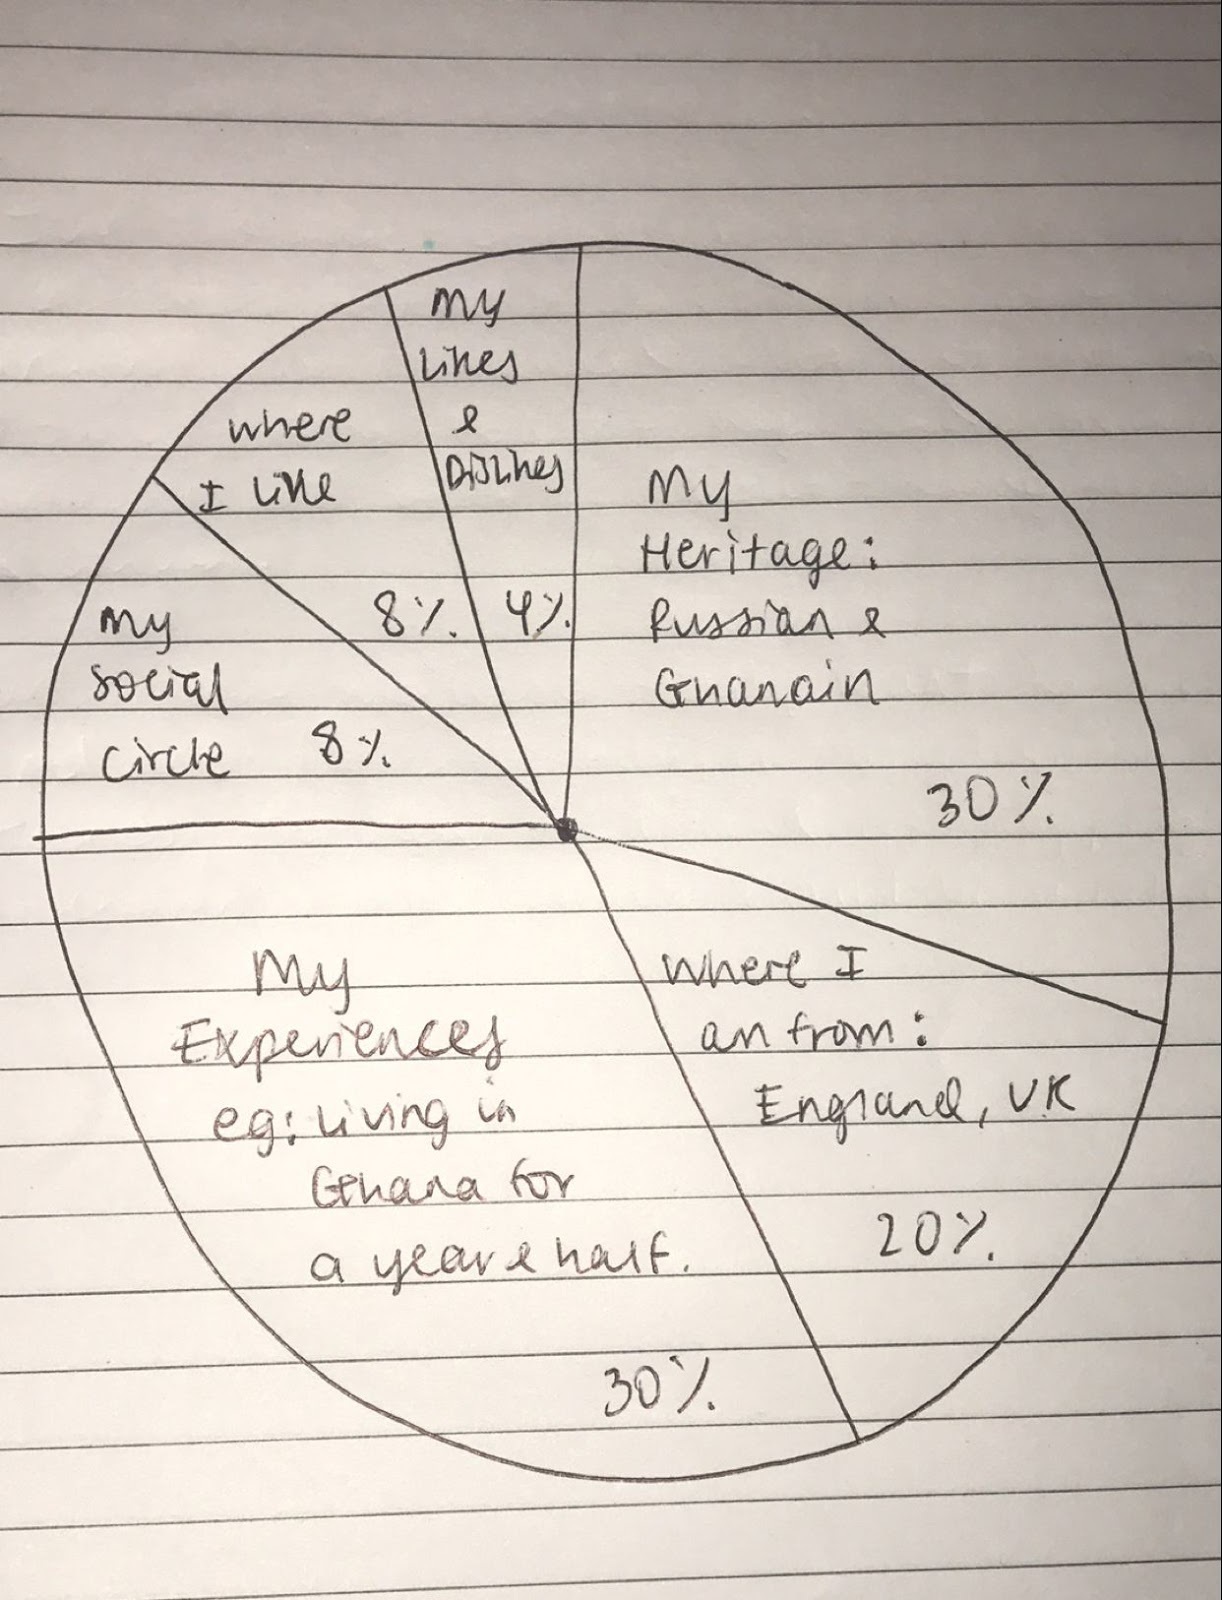 My
Likes
&
Dislikes
4%.
where
I Like
8%.
My
social
circle 8%.
My
Heritage:
Russian &
Ghanain
30%.
where I
am from:
England, UK
20%.
My
Experiences
eg: Living in
Ghana for
a year & half.
30%.